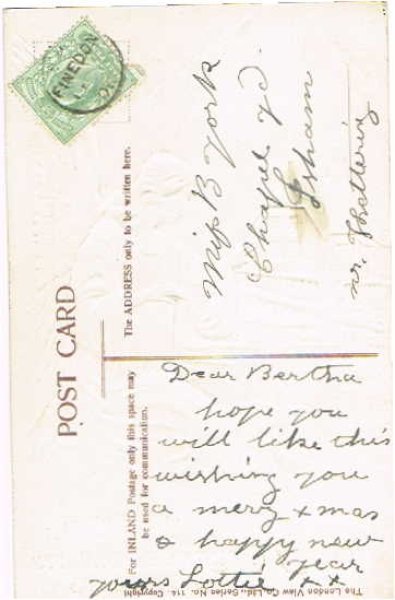 POST CARD
For INLAND Postage only this space may
be used for communication.
The ADDRESS only to be written here.
FINEDON
Miss B York
Chapel Yd.
Isham
nr. Kettering
Dear Bertha
hope you
will like this
wishing you
a merry xmas
& happy new
year
yours Lottie xx
The London View Co Ltd., Series No. 114. Copyright